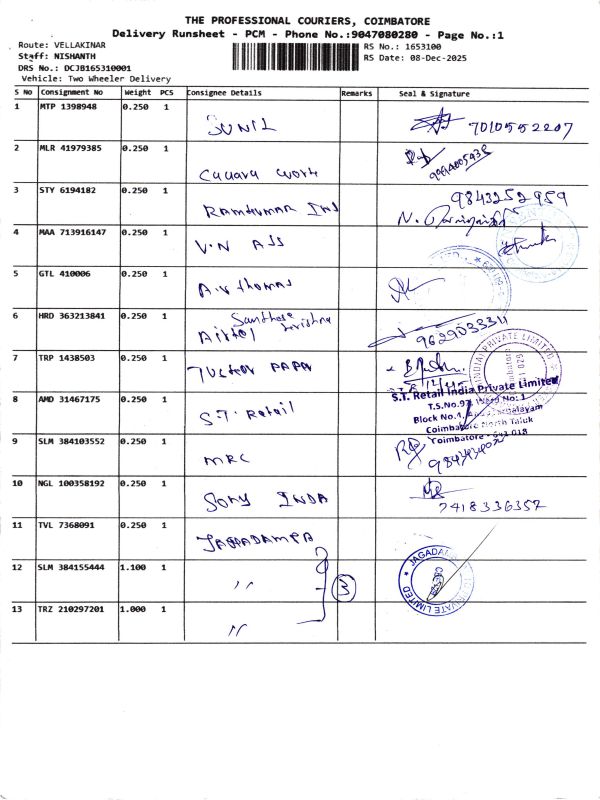 THE PROFESSIONAL COURIERS, COIMBATORE
Delivery Runsheet - PCM - Phone No.:9047080280 - Page No.:1
Route: VELLAKINAR
RS No.: 1653100
Staff: NISHANTH
RS Date: 08-Dec-2025
DRS No.: DCJB165310001
Vehicle: Two Wheeler Delivery
S No Consignment No Weight PCS Consignee Details Remarks Seal & Signature
1 MTP 1398948 0.250 1 SUNIL 7010552207
2 MLR 41979385 0.250 1
3 STY 6194182 0.250 1 9843252959
4 MAA 713916147 0.250 1 V.N ASS
5 GTL 410006 0.250 1 A.V Thomas
6 HRD 363213841 0.250 1 Airtel Santhose krishna 9629033311
7 TRP 1438503 0.250 1
8 AMD 31467175 0.250 1 S.T. Retail
S.T. Retail India Private Limited
T.S.No.97, Ward No: 1
Block No.1,
Coimbatore North Taluk
Coimbatore - 641 018
9 SLM 384103552 0.250 1 MRC
10 NGL 100358192 0.250 1 Sony INDA 7418336357
11 TVL 7368091 0.250 1 JAGADAMPA
12 SLM 384155444 1.100 1 " 3
13 TRZ 210297201 1.000 1 "